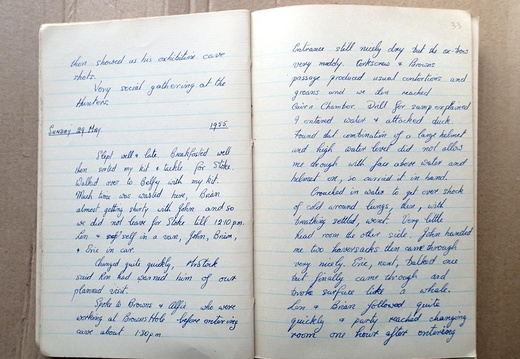 then showed us his exhibition cave
shots.
Very social gathering at the
Hunters.
Sunday 29 May. 1955
Slept well & late. Breakfasted well
then sorted my kit & tackle for Stoke
Walked over to Belfry with my kit.
Much time was wasted here, Brian
almost getting shirty with John and so
we did not leave for Stoke till 12.10pm.
Len & self in a van, John, Brian,
& Eric in car.
Changed quite quickly, Mr Stock
said Ken had warned him of our
planned visit.
Spoke to Browns & Alfie who were
working at Browns Hole before entering
cave about 1.30pm
33
Entrance still nicely dry but the ox-bow
very muddy. Corkscrew & Browns
passage produced usual contortions and
groans and we then reached
Cairn Chamber. Drill for sump explained
I entered water & attacked duck.
Found that combination of a large helmet
and high water level did not allow
me through with face above water and
helmet on, so carried it in hand.
Crouched in water to get over shock
of cold around lungs, then, with
breathing settled, went. Very little
head room the other side. John handed
me two haversacks then came through
very nicely. Eric, next, balked once
but finally came through and
broke surface like a whale.
Len & Brian followed quite
quickly & party reached changing
room one hour after entering